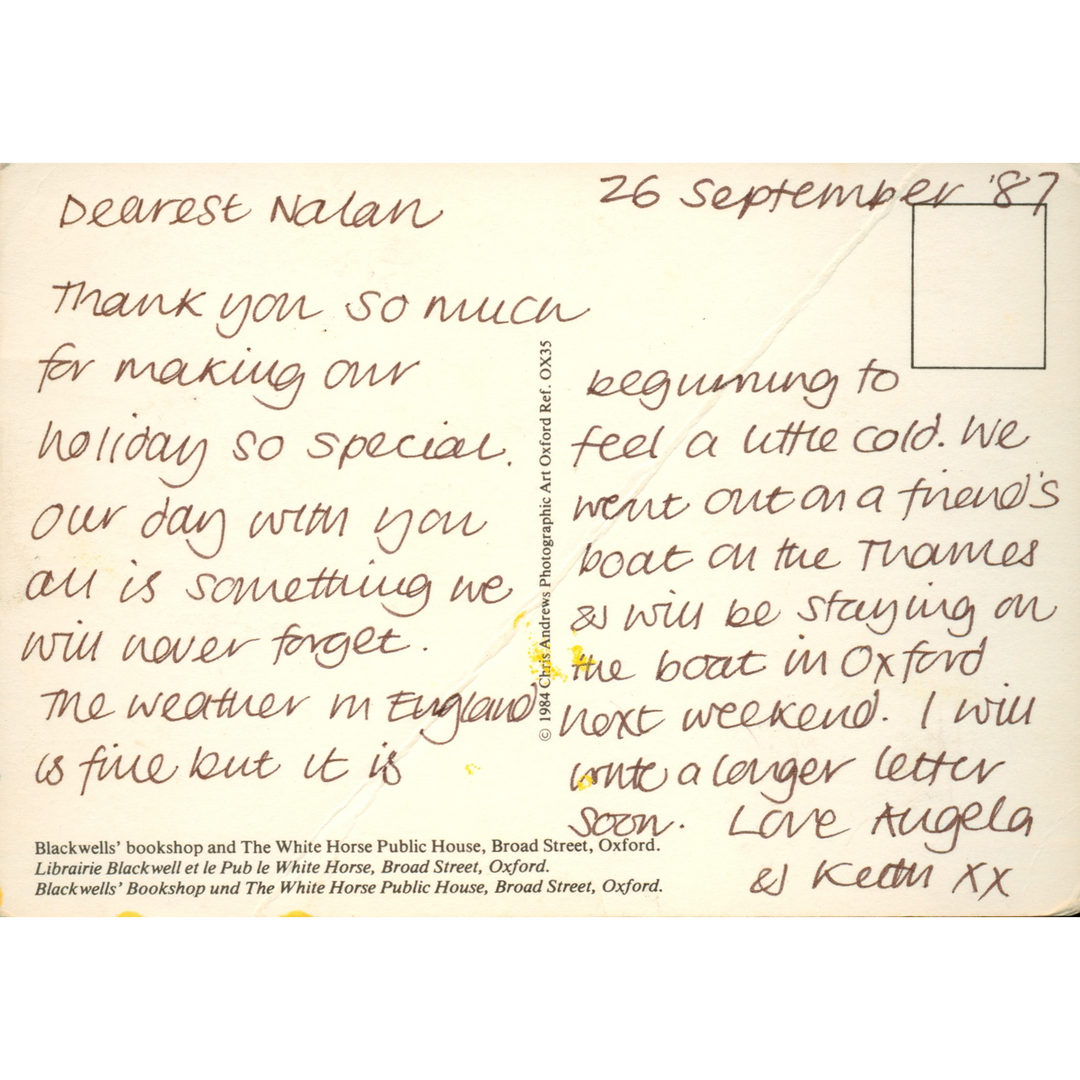 26 September '87
Dearest Nalan
Thank you so much
for making our
holiday so special.
Our day with you
all is something we
will never forget.
The weather in England
is fine but it is
beginning to
feel a little cold. We
went out on a friend's
boat on the Thames
& will be staying on
the boat in Oxford
next weekend. I will
write a longer letter
soon. Love Angela
& Keith XX
© 1984 Chris Andrews Photographic Art Oxford Ref. OX35
Blackwells' bookshop and The White Horse Public House, Broad Street, Oxford.
Librairie Blackwell et le Pub le White Horse, Broad Street, Oxford.
Blackwells' Bookshop und The White Horse Public House, Broad Street, Oxford.